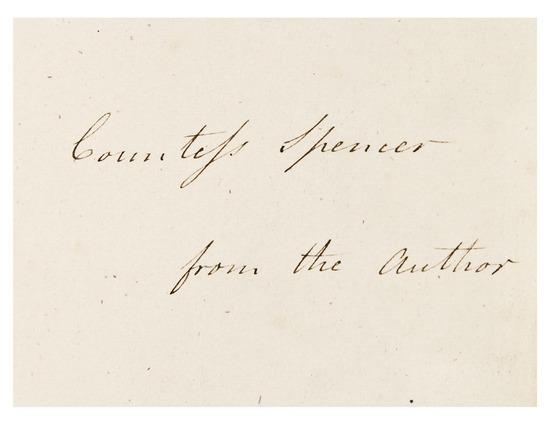 Counteſs Spencer
from the Author